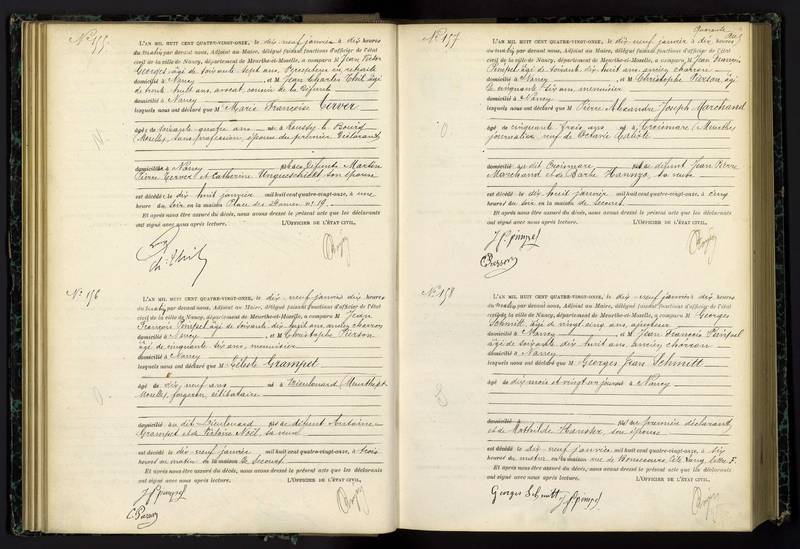 N° 155.
L'AN MIL HUIT CENT QUATRE-VINGT-ONZE, le dix-neuf janvier à dix heures
du matin par devant nous, Adjoint au Maire, délégué faisant fonctions d'officier de l'état
civil de la ville de Nancy, département de Meurthe-et-Moselle, a comparu M Jean Victor
Georges, âgé de soixante sept ans, Percepteur en retraite
domicilié à Nancy, et M Jean Charles âgé
de trente huit ans, avocat, cousin de la défunte
domicilié à Nancy
lesquels nous ont déclaré que M Marie Françoise Cerver
âgée de soixante-quatre ans née à Roussy le Bourg
(Moselle), sans profession, épouse du premier déclarant,
domiciliée à Nancy fille des défunts Martin
Pierre Cerver et Catherine son épouse
est décédée le dix huit janvier mil huit cent quatre-vingt-onze, à une
heure du soir en la maison Place des Dames n° 19.
Et après nous être assuré du décès, nous avons dressé le présent acte que les déclarants
ont signé avec nous après lecture. L'OFFICIER DE L'ÉTAT CIVIL,
N° 156
L'AN MIL HUIT CENT QUATRE-VINGT-ONZE, le dix-neuf janvier dix heures
du matin par devant nous, Adjoint au Maire, délégué faisant fonctions d'officier de l'état
civil de la ville de Nancy, département de Meurthe-et-Moselle, a comparu M Jean
François Pimpel âgé de soixante dix huit ans, ancien charron
domicilié à Nancy, et M Christophe Pierson
âgé de cinquante six ans, menuisier
domicilié à Nancy
lesquels nous ont déclaré que M Céleste Grampel
âgé de dix neuf ans né à Dieulouard (Meurthe et
Moselle), forgeron, célibataire
domicilié au dit Dieulouard fils de défunt Antoine
Grampel et de Victoire Noël, sa veuve
est décédé le dix-neuf janvier mil huit cent quatre-vingt-onze, à trois
heures du matin en la maison de Secours
Et après nous être assuré du décès, nous avons dressé le présent acte que les déclarants
ont signé avec nous après lecture. L'OFFICIER DE L'ÉTAT CIVIL,
J F pimpel
C. Pierson
Quarante
N° 157
L'AN MIL HUIT CENT QUATRE-VINGT-ONZE, le dix neuf janvier à dix heures
du matin par devant nous, Adjoint au Maire, délégué faisant fonctions d'officier de l'état
civil de la ville de Nancy, département de Meurthe-et-Moselle, a comparu M Jean François
Pimpel âgé de soixante dix huit ans, ancien charron
domicilié à Nancy, et M Christophe Pierson âgé
de cinquante six ans, menuisier
domicilié à Nancy
lesquels nous ont déclaré que M Pierre Alexandre Joseph Marchand
âgé de cinquante trois ans né à Croismare (Meurthe)
journalier, veuf de Octavie
domicilié au dit Croismare, fils de défunt Jean Pierre
Marchand et de Barbe sa veuve
est décédé le dix huit janvier mil huit cent quatre-vingt-onze, à cinq
heures du soir en la maison de Secours
Et après nous être assuré du décès, nous avons dressé le présent acte que les déclarants
ont signé avec nous après lecture. L'OFFICIER DE L'ÉTAT CIVIL,
J F pimpel
C Pierson
N° 158
L'AN MIL HUIT CENT QUATRE-VINGT-ONZE, le dix-neuf janvier dix heures
du matin par devant nous, Adjoint au Maire, délégué faisant fonctions d'officier de l'état
civil de la ville de Nancy, département de Meurthe-et-Moselle, a comparu M Georges
Schmitt, âgé de vingt cinq ans, ajusteur
domicilié à Nancy, et M Jean François Pimpel
âgé de soixante dix huit ans, ancien charron
domicilié à Nancy
lesquels nous ont déclaré que M Georges Jean Schmitt
âgé de dix mois et vingt un jours né à Nancy
domicilié à fils du premier déclarant,
et de Mathilde son épouse
est décédé le dix-neuf janvier mil huit cent quatre-vingt-onze, à six
heures du matin en la maison rue de Bonsecours, lettre F.
Et après nous être assuré du décès, nous avons dressé le présent acte que les déclarants
ont signé avec nous après lecture. L'OFFICIER DE L'ÉTAT CIVIL,
Georges Schmitt J F pimpel